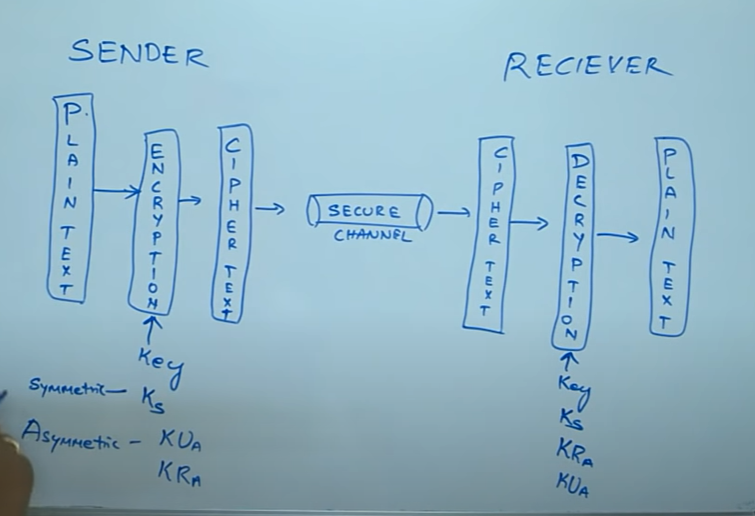 SENDER
RECIEVER
PLAIN TEXT
ENCRYPTION
CIPHER TEXT
SECURE
CHANNEL
CIPHER TEXT
DECRYPTION
PLAIN TEXT
Key
Symmetric — Ks
Asymmetric - KUA
KRA
Key
Ks
KRA
KUA